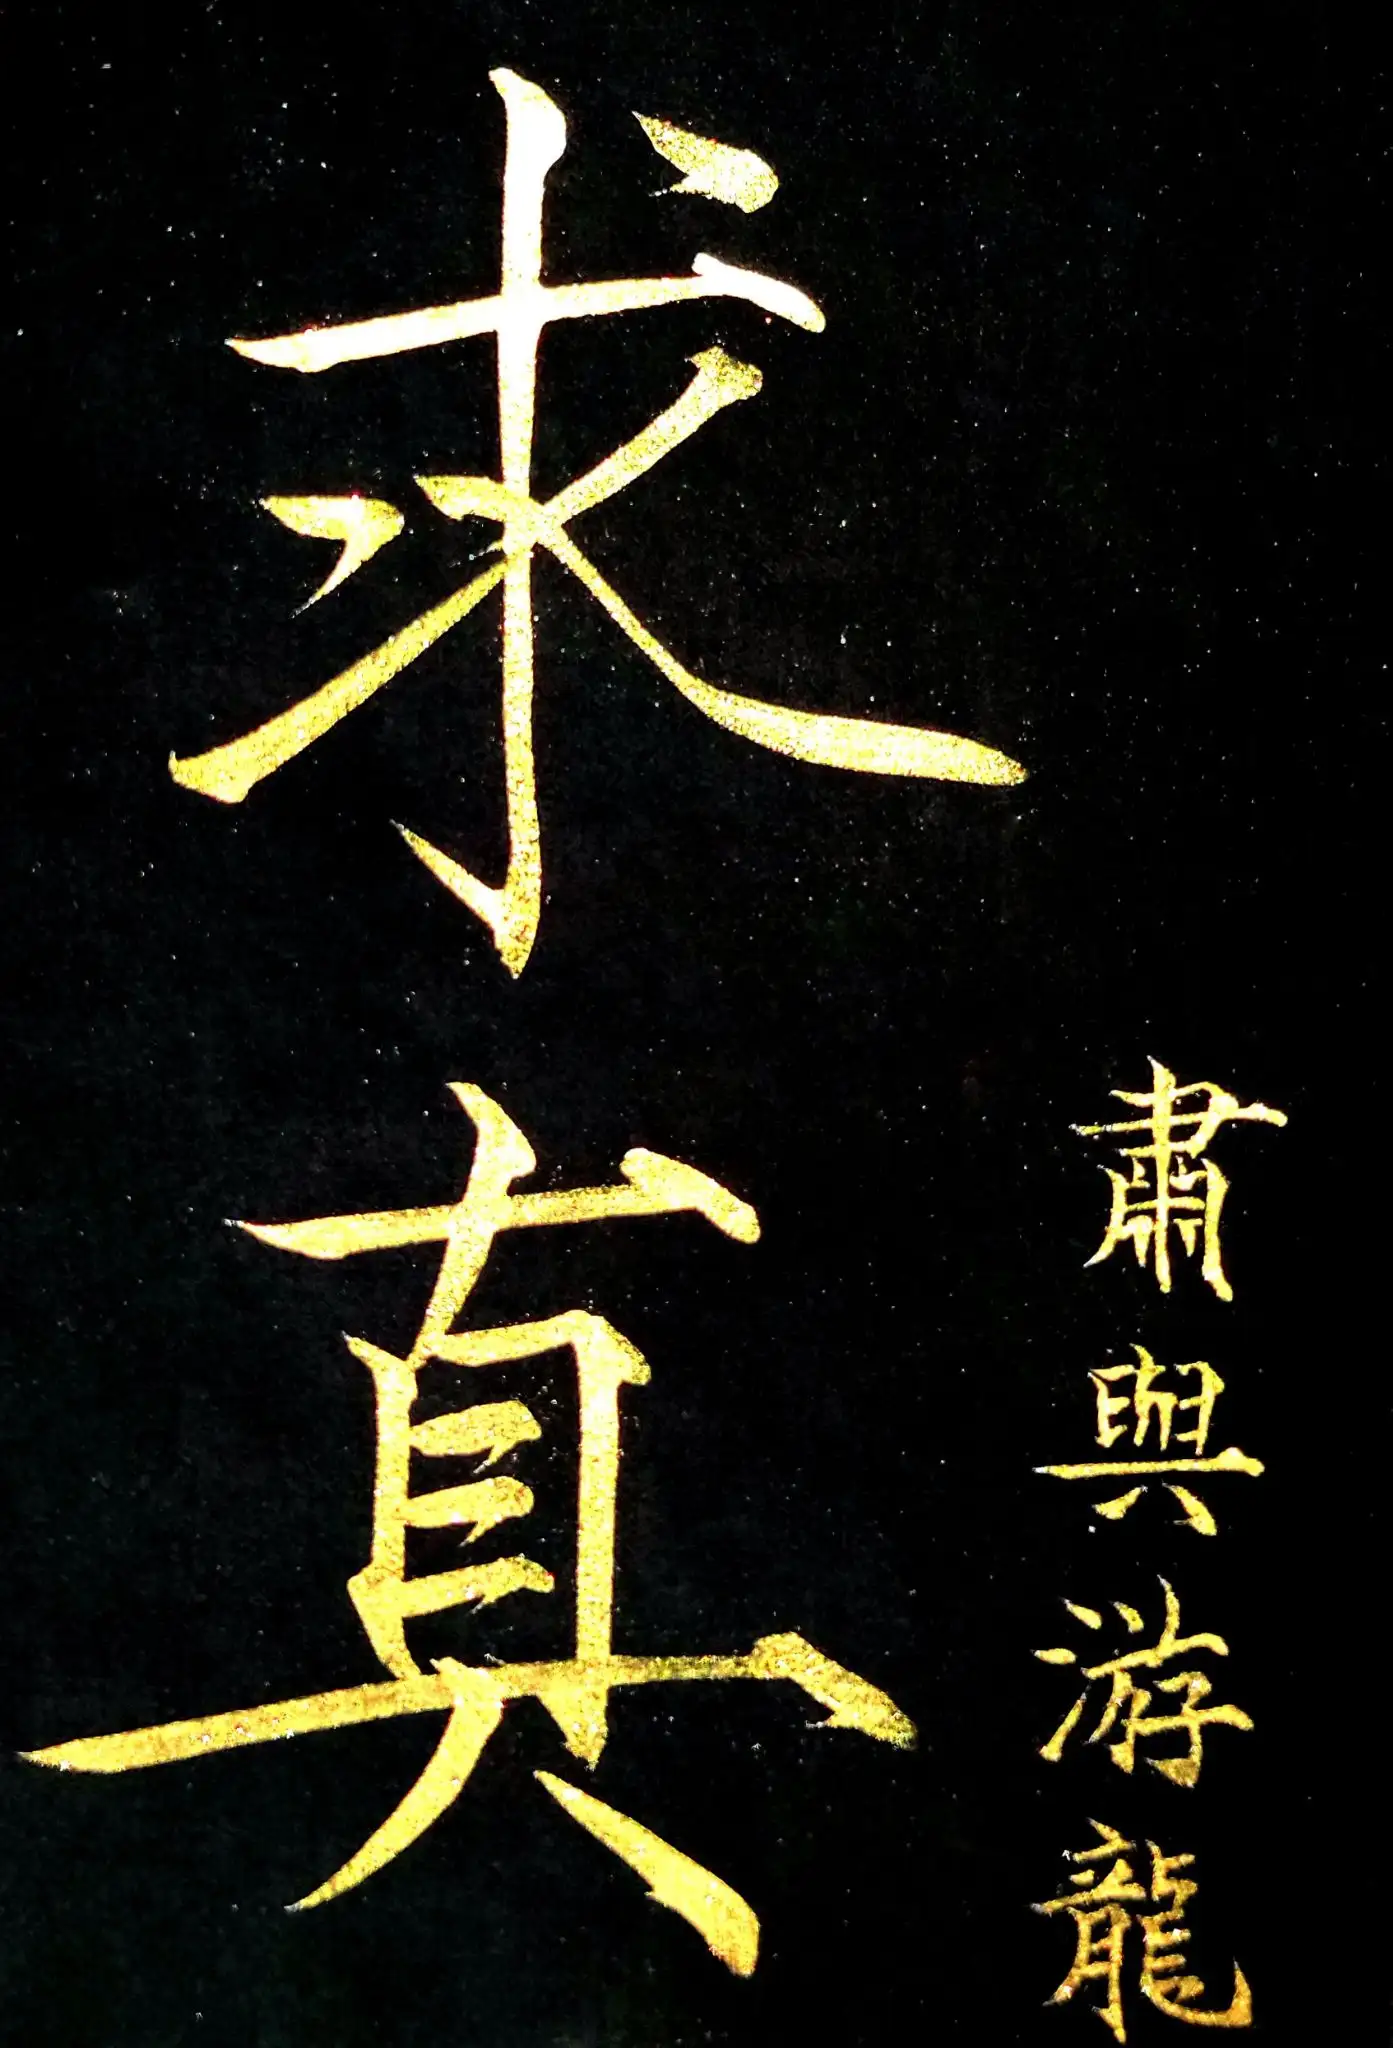 求真
肅與游龍